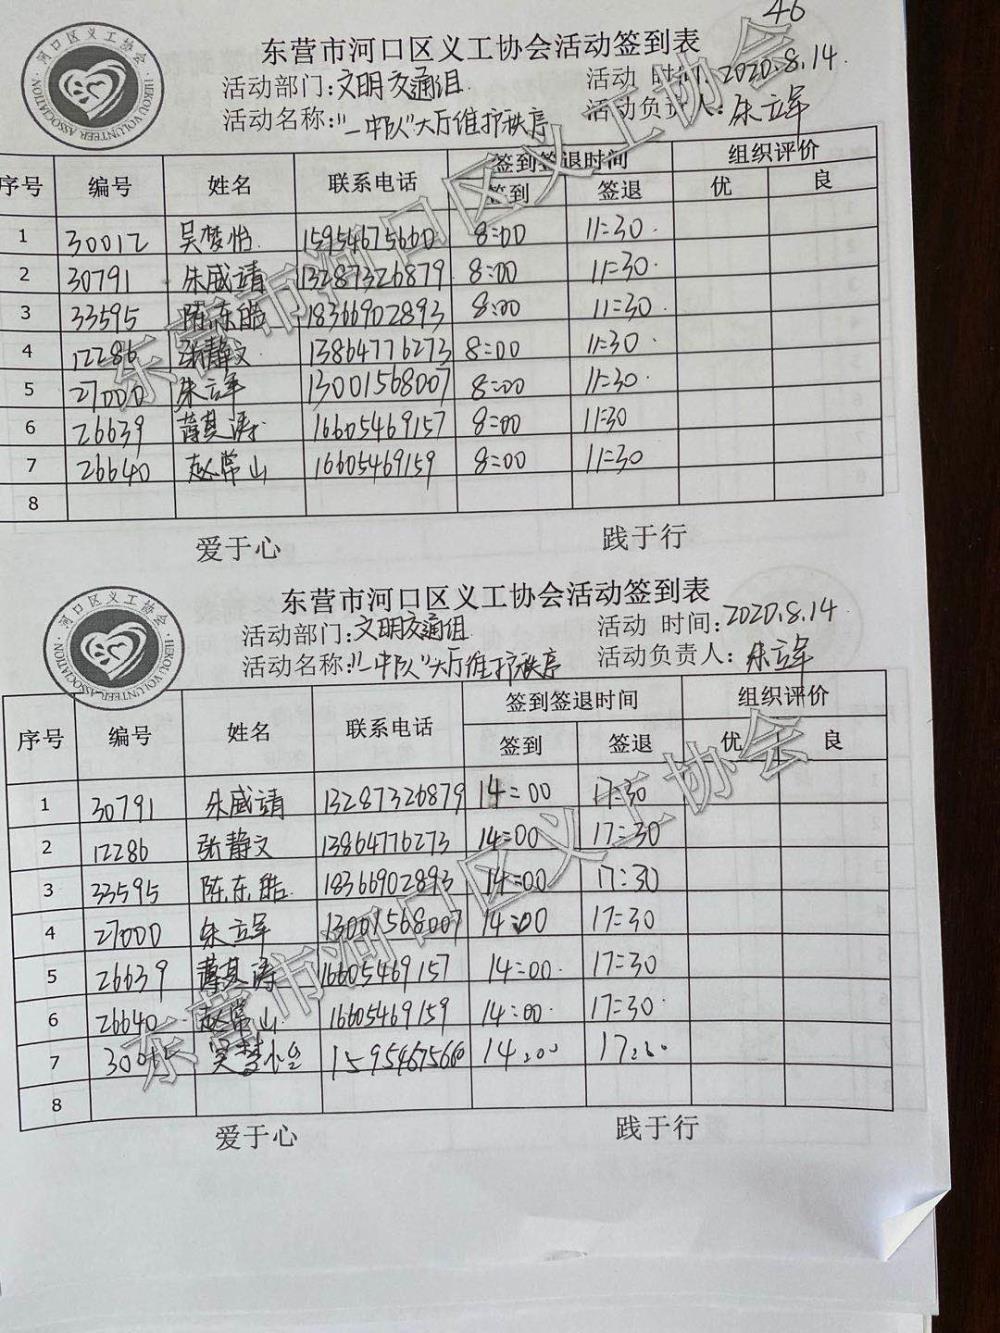 46
东营市河口区义工协会活动签到表
活动部门:文明交通组 活动 时间:2020.8.14
活动名称:"一中队"大厅维护秩序 活动负责人:朱立军
序号 编号 姓名 联系电话 签到签退时间 组织评价
签到 签退 优 良
1 30012 吴梦怡 15954675660 8:00 11:30
2 30791 朱威靖 13287326879 8:00 11:30
3 33595 陈东皓 18366902893 8:00 11:30
4 12286 张静文 13864776273 8:00 11:30
5 27000 朱立军 13001568007 8:00 11:30
6 26639 薛其涛 16605469157 8:00 11:30
7 26640 赵常山 16605469159 8:00 11:30
8
爱于心 践于行
东营市河口区义工协会
河口区义工协会
HEKOU VOLUNTEER ASSOCIATION
东营市河口区义工协会活动签到表
活动部门:文明交通组 活动 时间:2020.8.14
活动名称:"一中队"大厅维护秩序 活动负责人:朱立军
序号 编号 姓名 联系电话 签到签退时间 组织评价
签到 签退 优 良
1 30791 朱威靖 13287326879 14:00 17:30
2 12286 张静文 13864776273 14:00 17:30
3 33595 陈东皓 18366902893 14:00 17:30
4 27000 朱立军 13001568007 14:00 17:30
5 26639 薛其涛 16605469157 14:00 17:30
6 26640 赵常山 16605469159 14:00 17:30
7 吴梦怡 14:00
8
爱于心 践于行
东营市河口区义工协会
河口区义工协会
HEKOU VOLUNTEER ASSOCIATION